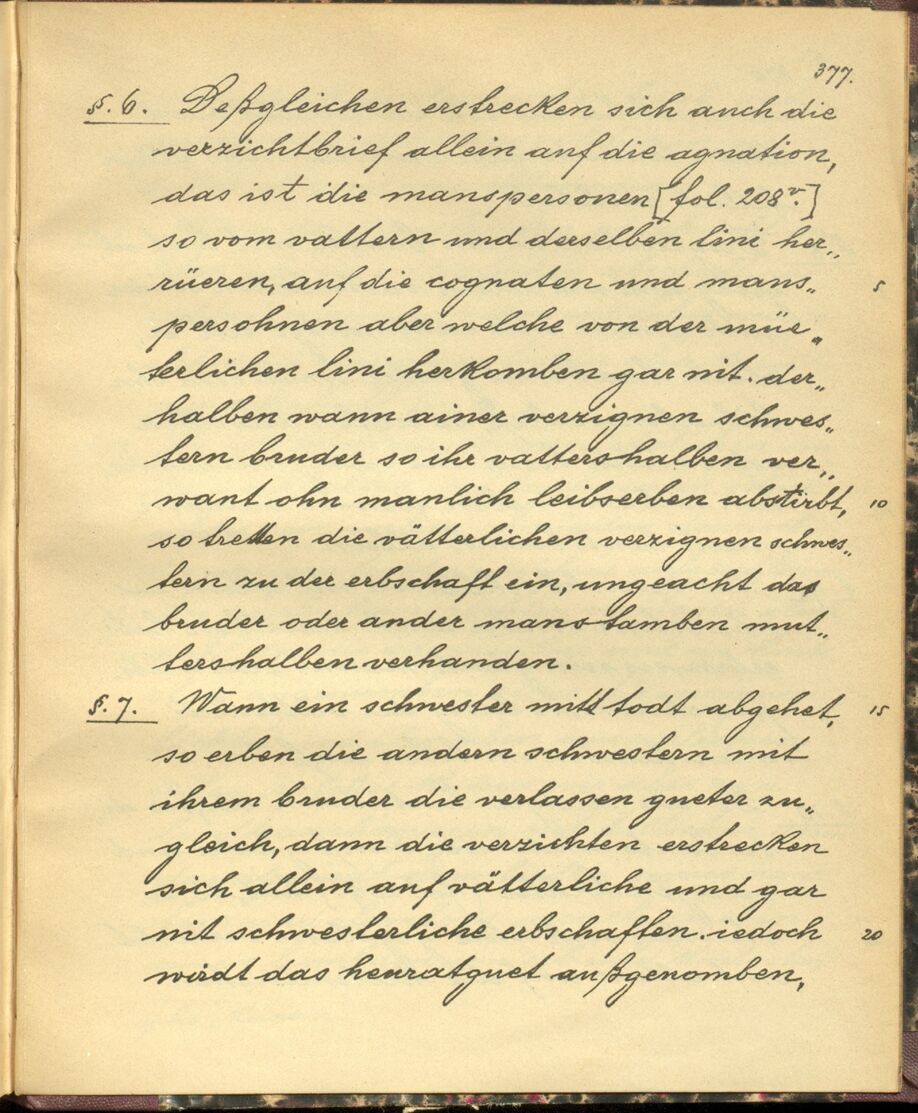 377.
§. 6. Deßgleichen erstrecken sich auch die
verzichtbrief allein auf die agnation,
das ist die manspersonen [fol. 208v.]
so vom vattern und derselben lini her„
rüeren, auf die cognaten und mans„ 5
persohnen aber welche von der müe„
terlichen lini herkomben gar nit. der„
halben wann ainer verzignen schwes„
tern bruder so ihr vattershalben ver„
want ohn manlich leibserben abstirbt, 10
so tretten die vätterlichen verzignen schwes„
tern zu der erbschaft ein, ungeacht das
bruder oder ander manstamben mut„
tershalben verhanden.
§. 7. Wann ein schwester mitt todt abgehet, 15
so erben die andern schwestern mit
ihrem bruder die verlassen gueter zu„
gleich, dann die verzichten erstrecken
sich allein auf vätterliche und gar
nit schwesterliche erbschaften. iedoch 20
wirdt das heuratguet außgenomben,